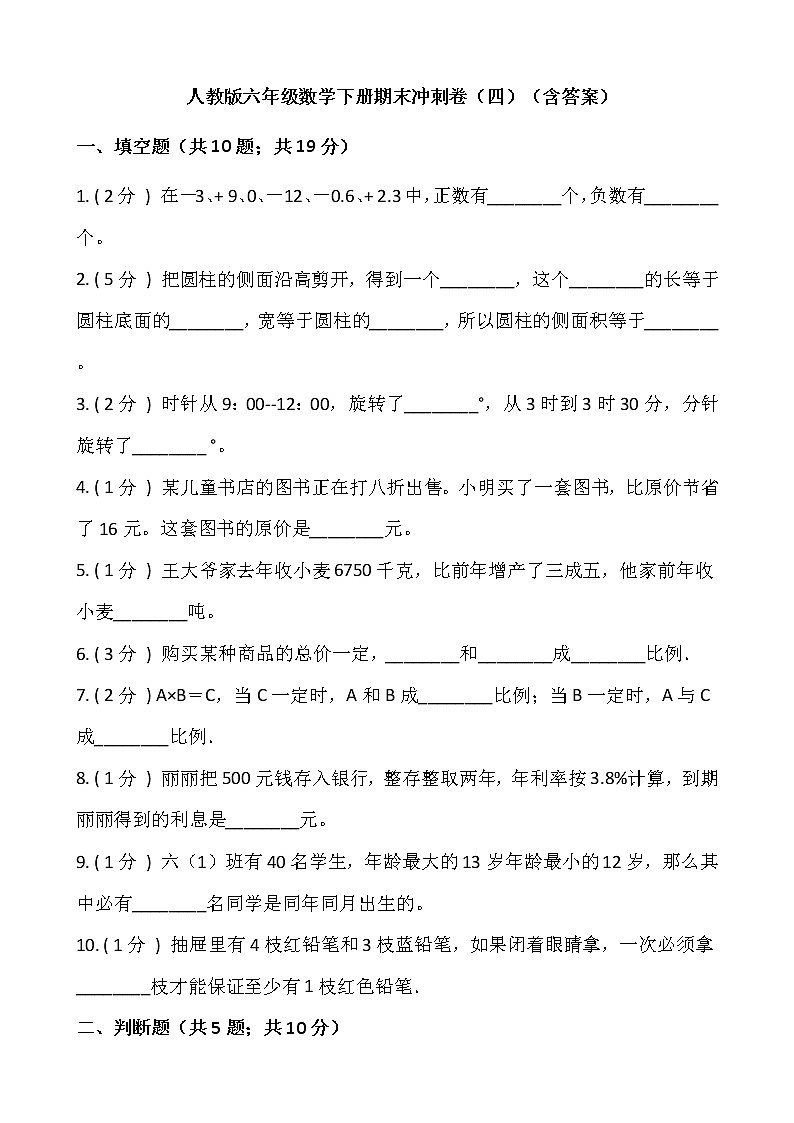 人教版六年级数学下册期末冲刺卷（四）（含答案）
一、填空题（共10题；共19分）
1. ( 2分 ) 在－3、+ 9、0、－12、－0.6、+ 2.3中，正数有________个，负数有________
个。
2. ( 5分 ) 把圆柱的侧面沿高剪开，得到一个________，这个________的长等于
圆柱底面的________，宽等于圆柱的________，所以圆柱的侧面积等于________
。
3. ( 2分 ) 时针从9：00--12：00，旋转了________°，从3时到3时30分，分针
旋转了________ °。
4. ( 1分 ) 某儿童书店的图书正在打八折出售。小明买了一套图书，比原价节省
了16元。这套图书的原价是________元。
5. ( 1分 ) 王大爷家去年收小麦6750千克，比前年增产了三成五，他家前年收
小麦________吨。
6. ( 3分 ) 购买某种商品的总价一定，________和________成________比例．
7. ( 2分 ) A×B＝C，当C一定时，A和B成________比例；当B一定时，A与C
成________比例．
8. ( 1分 ) 丽丽把500元钱存入银行，整存整取两年，年利率按3.8%计算，到期
丽丽得到的利息是________元。
9. ( 1分 ) 六（1）班有40名学生，年龄最大的13岁年龄最小的12岁，那么其
中必有________名同学是同年同月出生的。
10. ( 1分 ) 抽屉里有4枝红铅笔和3枝蓝铅笔，如果闭着眼睛拿，一次必须拿
________枝才能保证至少有1枝红色铅笔．
二、判断题（共5题；共10分）